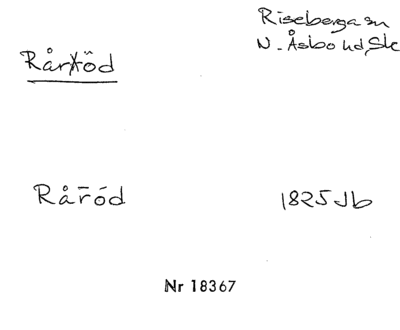 Riseberga sn
N. Åsbo hd, Sk
Råröd
Rår̄ód
1825 Jb
Nr 18367